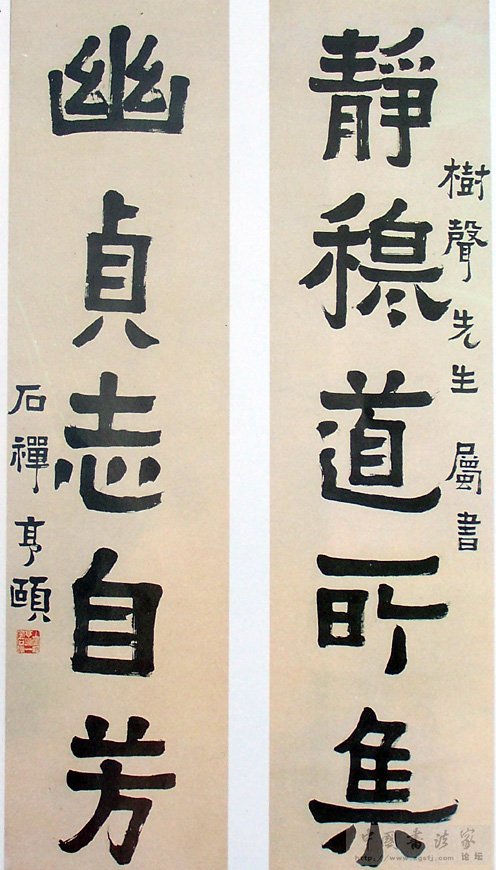 靜穆道所集
樹聲先生 屬書
幽貞志自芳
石禪亨頤
中國書法家論坛
http://www.zgsfj.com